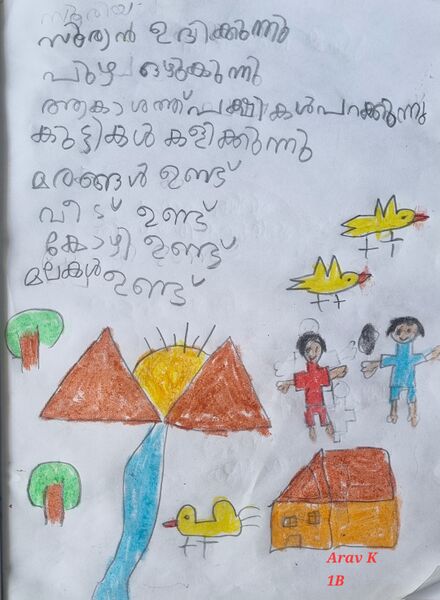 സൂരിയ
സൂര്യൻ ഉദിക്കുന്നു
പുഴ ഒഴുകുന്നു
ആകാശത്ത് പക്ഷികൾ പറക്കുന്നു
കുട്ടികൾ കളിക്കുന്നു
മരങ്ങൾ ഉണ്ട്
വീട് ഉണ്ട്
കോഴി ഉണ്ട്
മലകൾ ഉണ്ട്
Arav K
1B